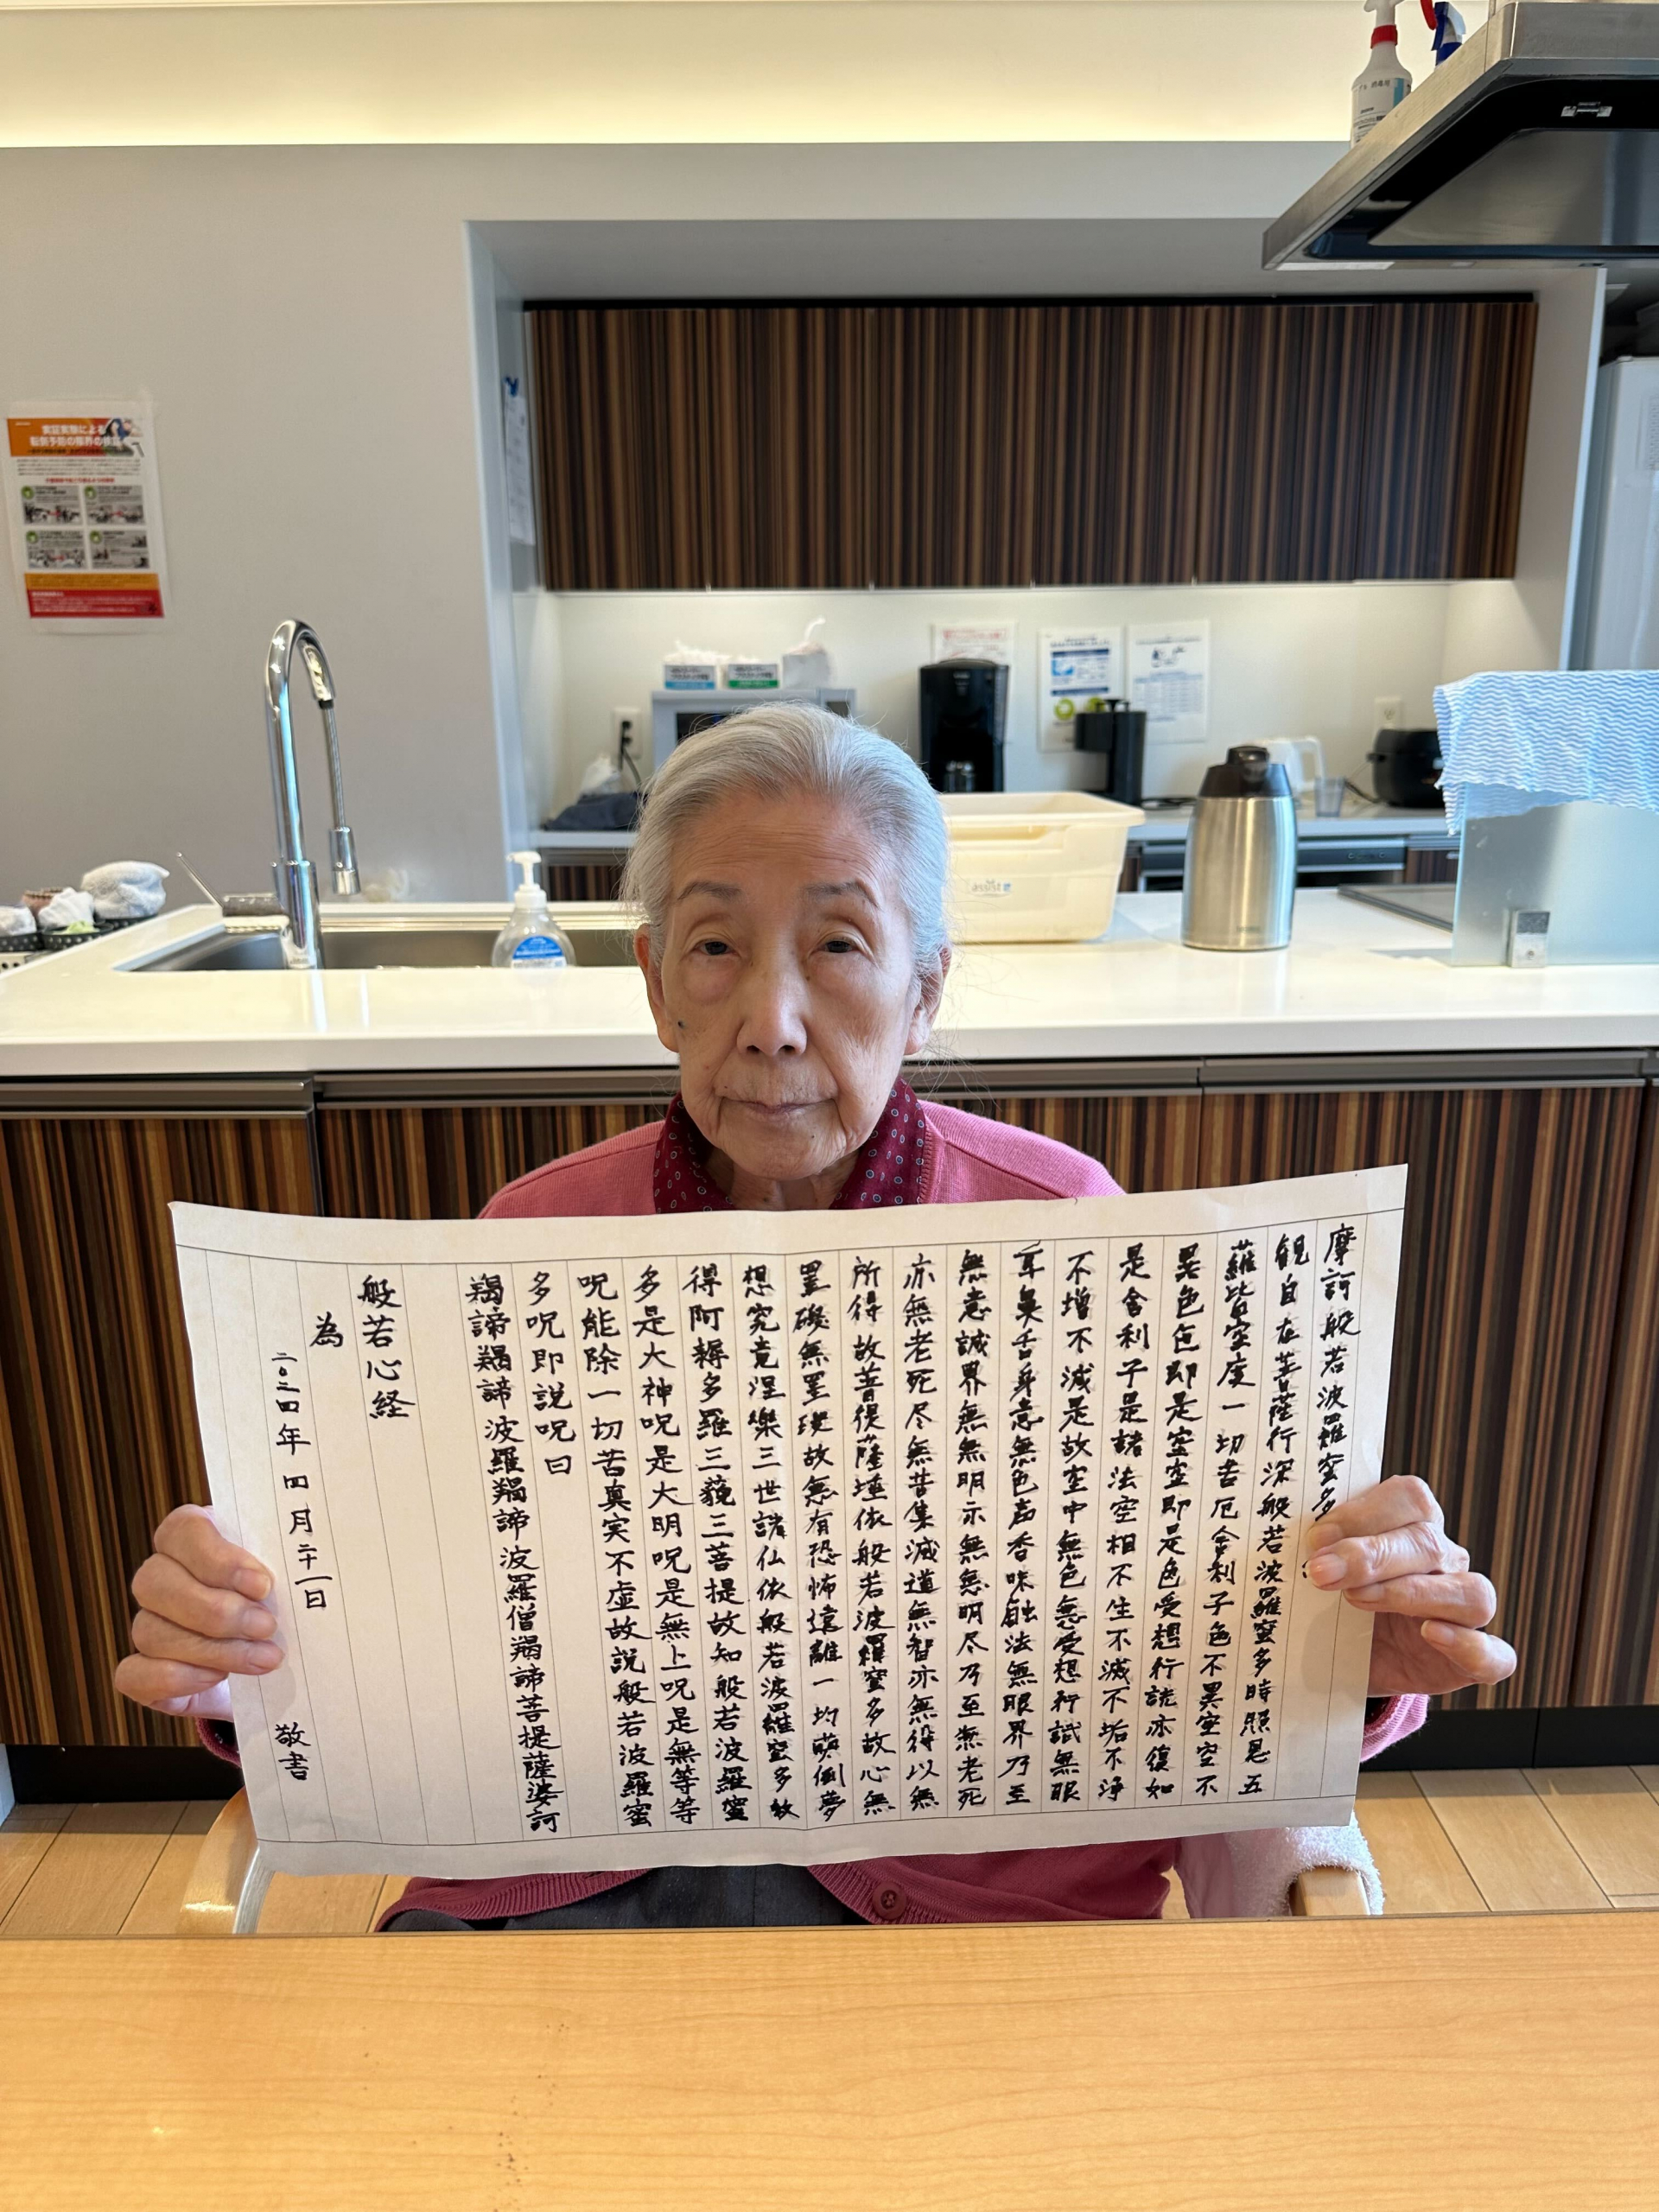 摩訶般若波羅蜜多
観自在菩薩行深般若波羅蜜多時照見五
蘿皆空度一切苦厄舎利子色不異空空不
異色色即是空空即是色受想行識亦復如
是舎利子是諸法空相不生不滅不垢不浄
不増不減是故空中無色無受想行識無眼
耳鼻舌身意無色声香味触法無眼界乃至
無意識界無無明亦無無明尽乃至無老死
亦無老死尽無苦集滅道無智亦無得以無
所得故菩提薩埵依般若波羅蜜多故心無
罣礙無罣礙故無有恐怖遠離一切顛倒夢
想究竟涅槃三世諸仏依般若波羅蜜多故
得阿耨多羅三藐三菩提故知般若波羅蜜
多是大神呪是大明呪是無上呪是無等等
呪能除一切苦真実不虚故説般若波羅蜜
多呪即説呪曰
羯諦羯諦波羅羯諦波羅僧羯諦菩提薩婆訶
般若心経
為
二〇二四年四月二十一日 敬書
実証実験による
転倒予防の限界の検証
assist